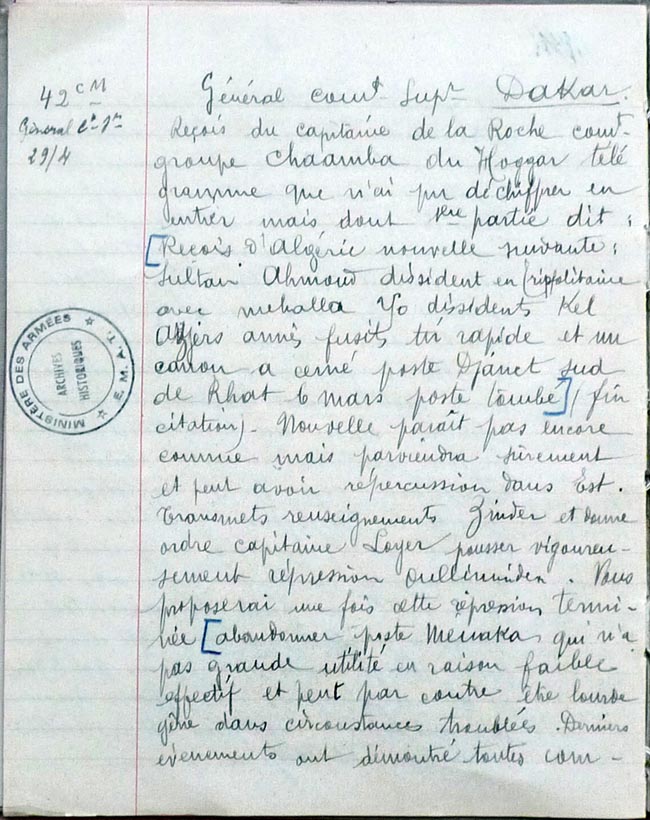 42 CM
Général Ct Sr
29/4
Général comt Supr Dakar.
Reçois du capitaine de la Roche comt
groupe Chaamba du Hoggar télé
gramme que n'ai pu déchiffrer en
entier mais dont 1ère partie dit :
[Reçois d'Algérie nouvelle suivante :
Sultan Ahmoud dissident en Tripolitaine
avec mehalla dissidents Kel
Azjers armés fusils tir rapide et un
canon a cerné poste Djanet sud
de Rhat 6 mars poste tombé] (fin
citation). Nouvelle paraît pas encore
connue mais parviendra sûrement
et peut avoir répercussion dans Est.
Transmets renseignements Zinder et donne
ordre capitaine Loyer pousser vigoureu-
sement répression Oulliminden. Vous
proposerai une fois cette répression termi-
née [abandonner poste Menaka qui n'a
pas grande utilité en raison faible
effectif et peut par contre être lourde
gêne dans circonstances troublées. Derniers
évènements ont démontré toutes com-
MINISTÈRE DES ARMÉES ★ E.M.A.T. ★
ARCHIVES
HISTORIQUES